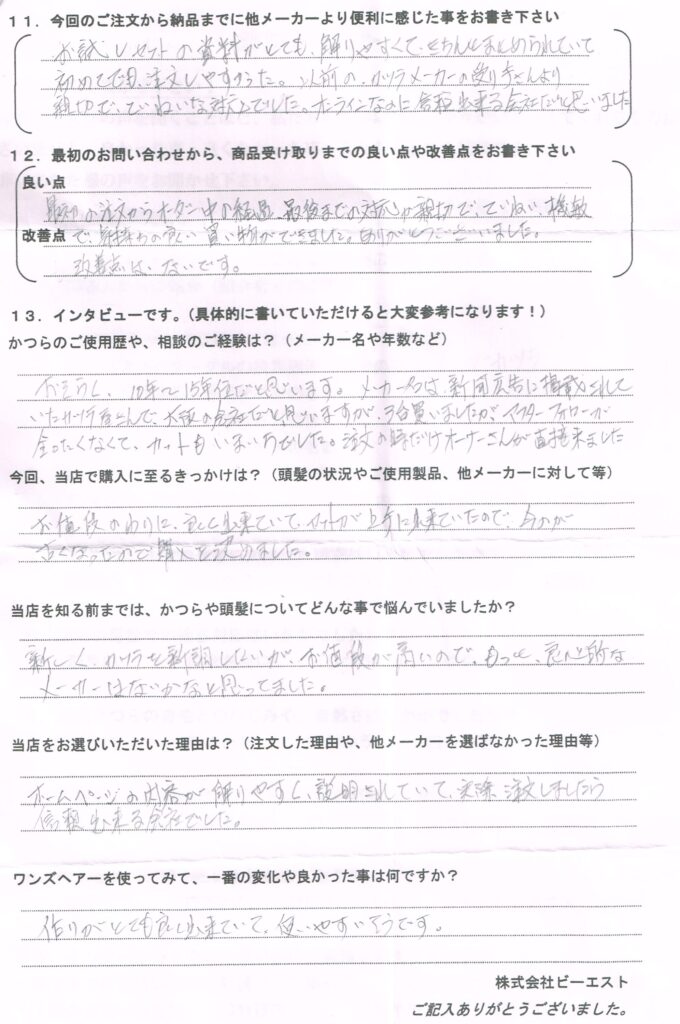 11．今回のご注文から納品までに他メーカーより便利に感じた事をお書き下さい
お試しセットの資料がとても、解りやすくて、きちんとまとめられていて
初めてでも、注文しやすかった。以前の、カツラメーカーの
親切で、ていねいな対応でした。オンラインなのに信頼出来る会社だと思いました
12．最初のお問い合わせから、商品受け取りまでの良い点や改善点をお書き下さい
良い点
最初の注文からオーダー中の経過、最後までの対応が親切で、ていねい、
改善点
で、気持ちの良い買い物ができました。ありがとうございました。
改善点は、ないです。
13．インタビューです。（具体的に書いていただけると大変参考になります！）
かつらのご使用歴や、相談のご経験は？（メーカー名や年数など）
おそらく、10年〜15年位だと思います。メーカー名は、新聞広告に掲載されて
いたカツラ 大阪の会社だと思いますが、3台買いましたが、アフターフォローが
全ったくなくて、カットもいまいちでした。注文の時だけオーナーさんが直接来ました
今回、当店で購入に至るきっかけは？（頭髪の状況やご使用製品、他メーカーに対して等）
お値段のわりに、良く出来ていて、カットが上手に出来ていたので、
なくなったので購入を決めました。
当店を知る前までは、かつらや頭髪についてどんな事で悩んでいましたか？
新しく、カツラを新調したいが、お値段が高いので、もっと、良心的な
メーカーはないかなと思ってました。
当店をお選びいただいた理由は？（注文した理由や、他メーカーを選ばなかった理由等）
ホームページの内容が解りやすく、説明されていて、実際、注文しましたら
信頼出来る会社でした。
ワンズヘアーを使ってみて、一番の変化や良かった事は何ですか？
作りがとても良く出来ていて、使いやすいそうです。
株式会社ビーエスト
ご記入ありがとうございました。